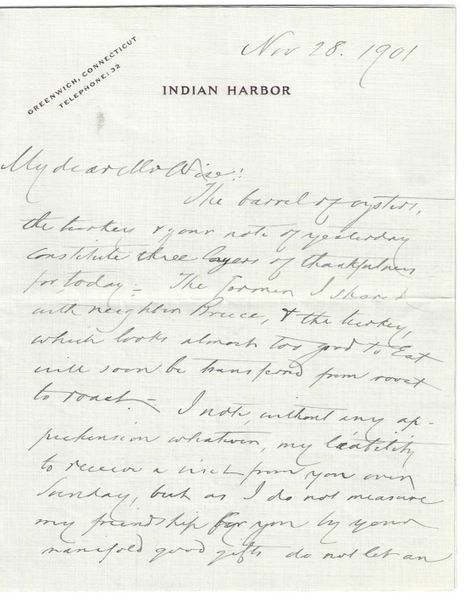 Nov 28. 1901
GREENWICH, CONNECTICUT
TELEPHONE: 32
INDIAN HARBOR
My dear Mr Wise:
The barrel of oysters,
the turkey & your note of yesterday
constitute three layers of thankfulness
for today – The former I shared
with neighbor Bruce, & the turkey,
which looks almost too good to Eat
will soon be transferred from roost
to roast – I note, without any ap-
prehension whatever, my liability
to receive a visit from you over
Sunday, but as I do not measure
my friendship for you by your
manifold good gifts do not let an